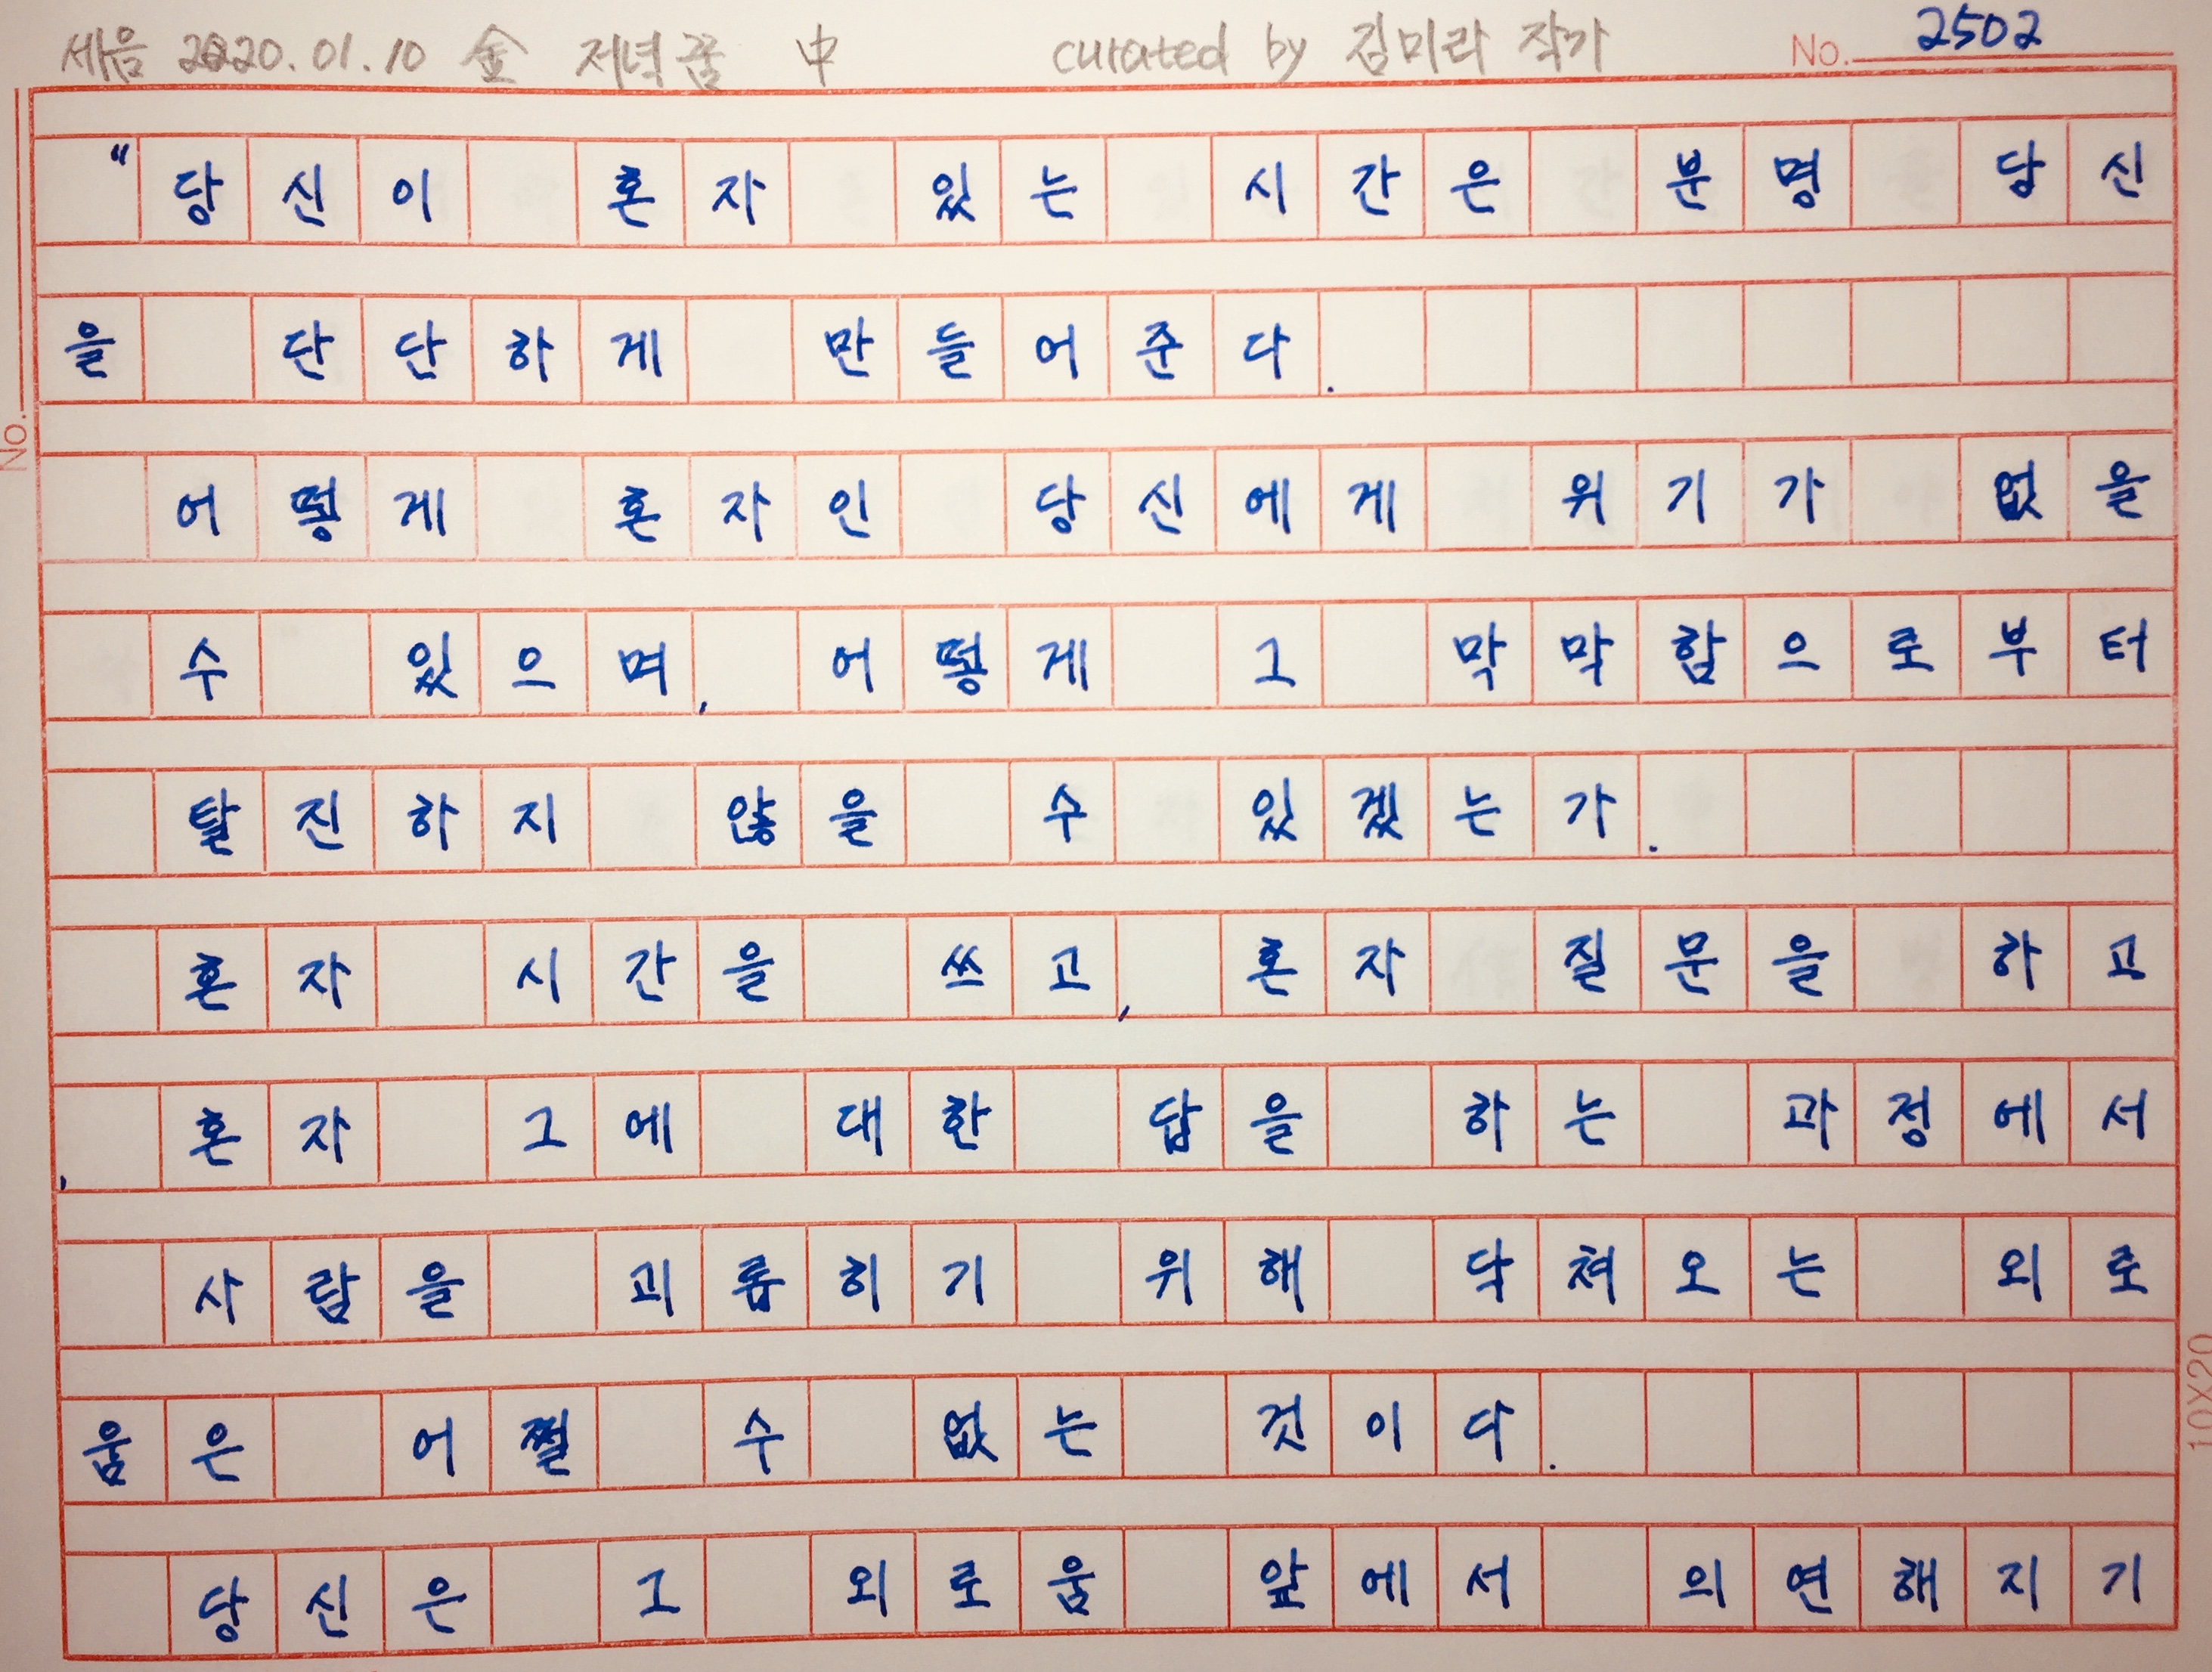 세음 2020.01.10 金 저녁꿈 中 curated by 김미라 작가 No. 2502
"당신이 혼자 있는 시간은 분명 당신
을 단단하게 만들어준다.
어떻게 혼자인 당신에게 위기가 없을
수 있으며, 어떻게 그 막막함으로부터
탈진하지 않을 수 있겠는가.
혼자 시간을 쓰고, 혼자 질문을 하고
, 혼자 그에 대한 답을 하는 과정에서
사람을 괴롭히기 위해 닥쳐오는 외로
움은 어쩔 수 없는 것이다.
당신은 그 외로움 앞에서 의연해지기
No.
10X20